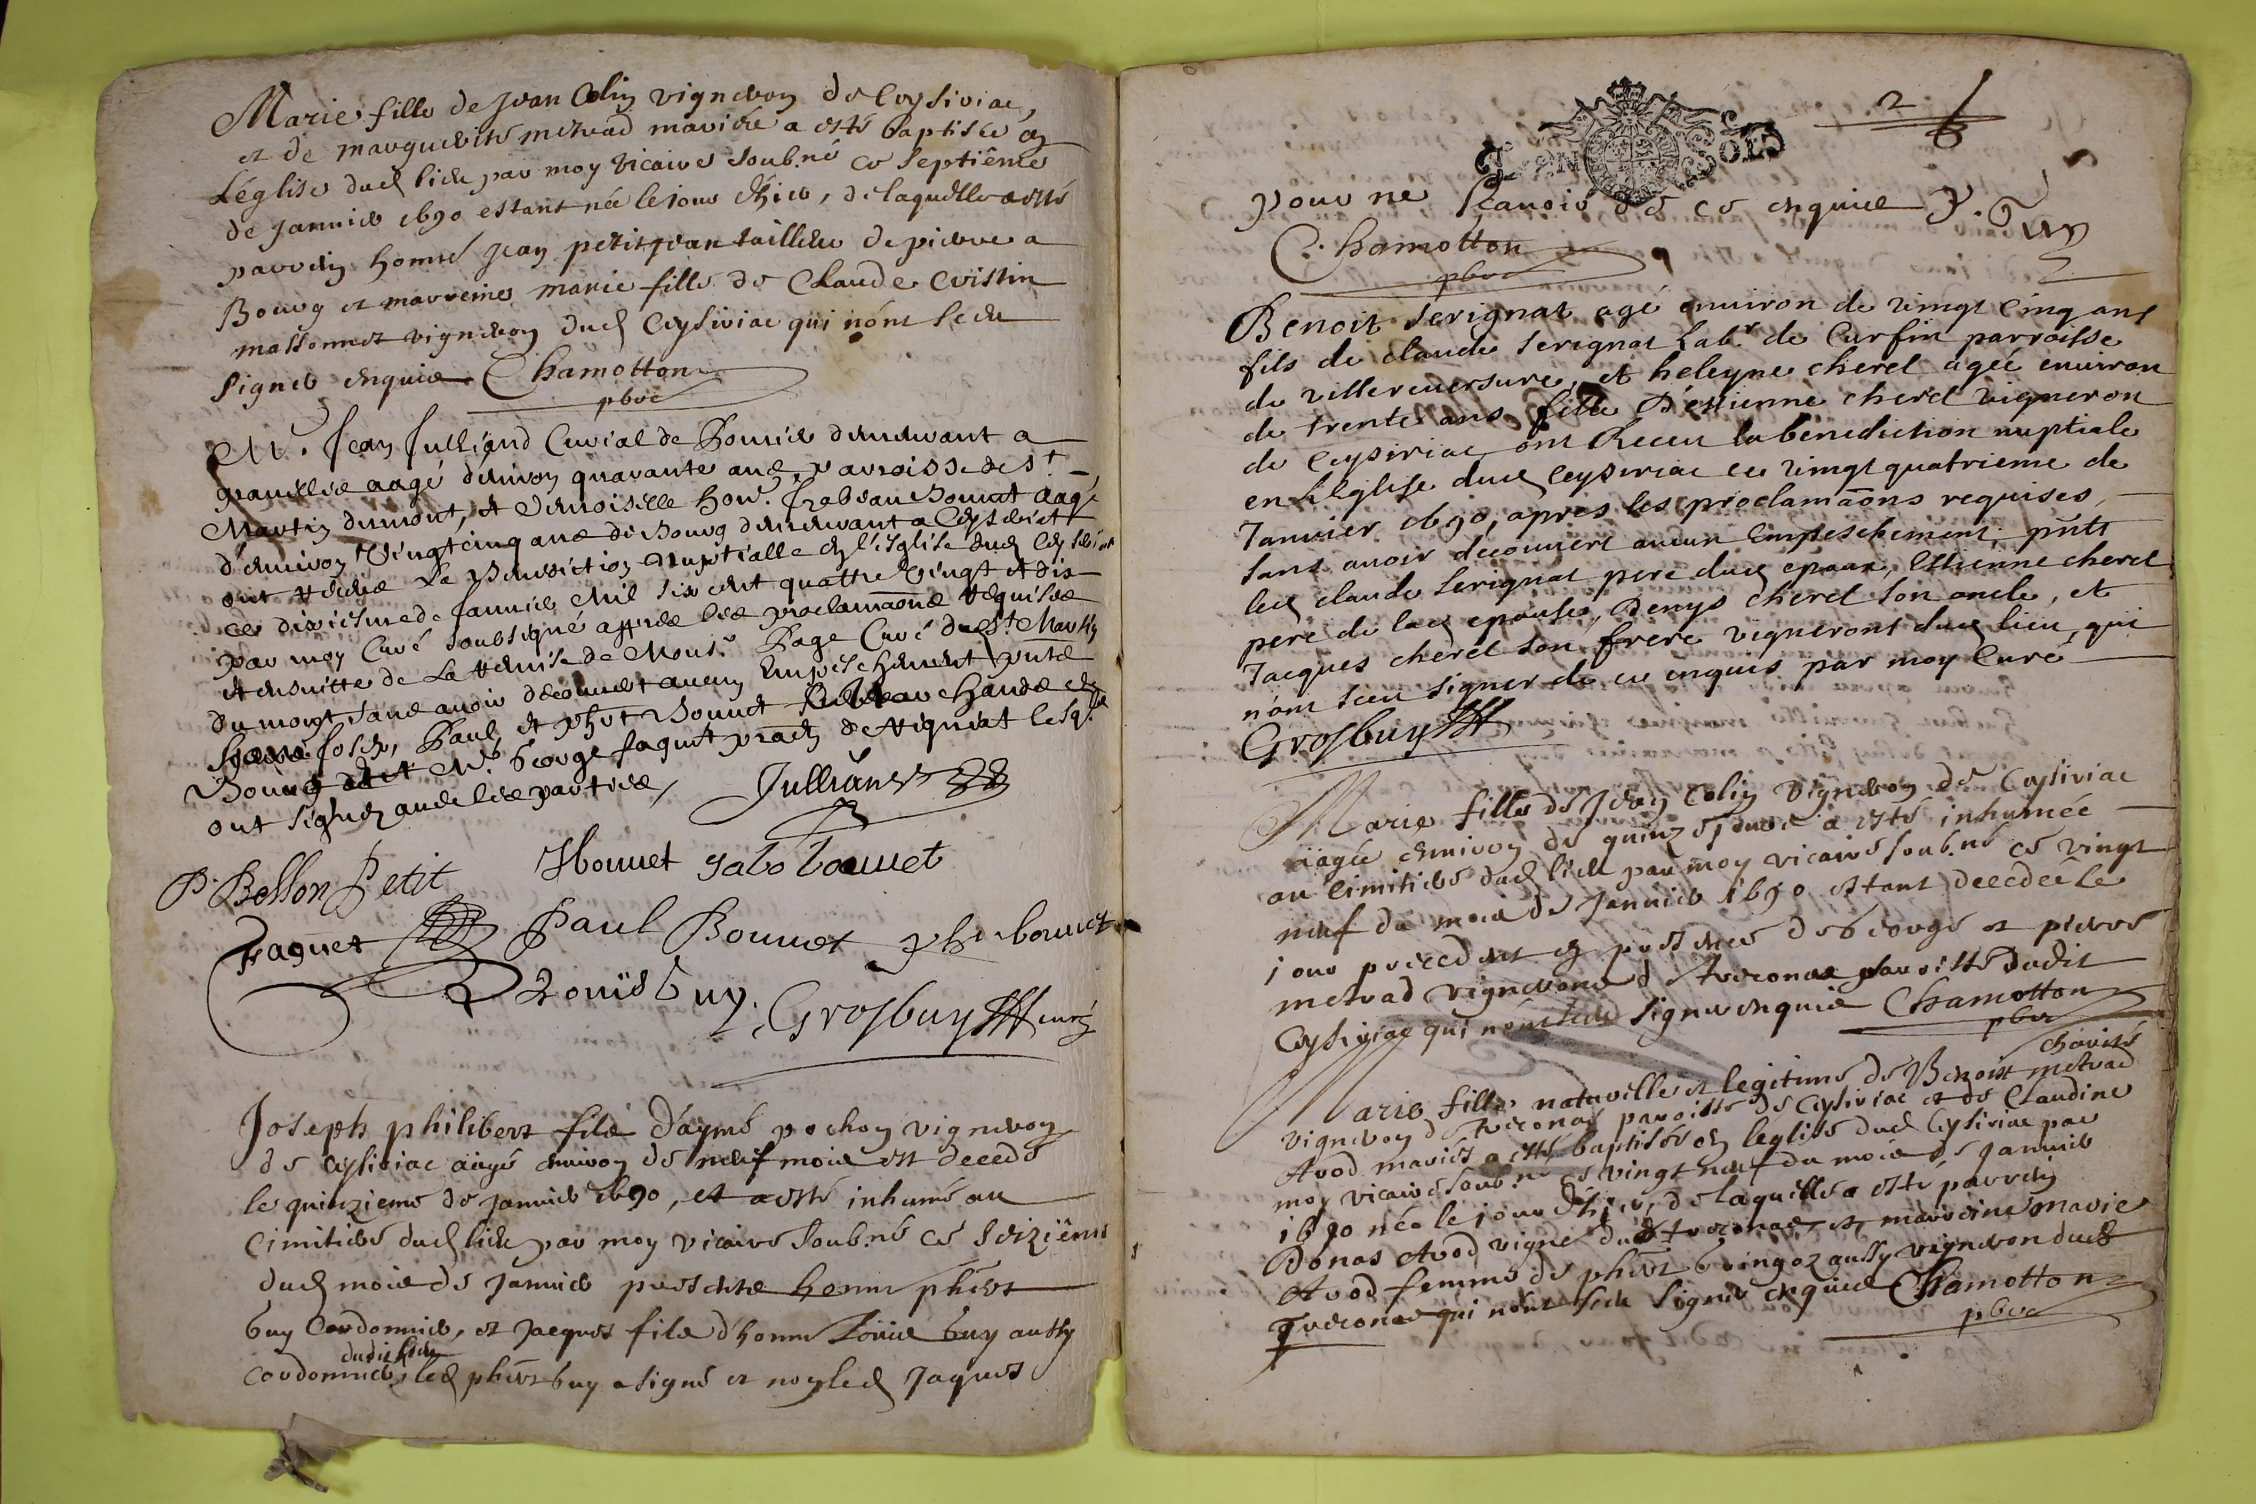 Marie fille de Jean Colin vigneron de Ceysiriac,
et de marguerite metrad mariés a esté baptisée en
L'église dud lieu par moy vicaire soub.né ce septiême
de Janvier 1690 estant née le jour d'hier, de laquelle a esté
parrein homé Jean petitjean tailleur de pierre a
Bourg et marreine marie fille de Claude Cristin
massonnet vigneron dud Ceysiriac qui n'ont sceu
signer enquis Chamotton
pbre
Mr. Jean Julliand Curial de Domicile demeurant a
aagé d'environ quarante ans parroisse de St.
Martin dumont, et Demoiselle Bonnet aagé
d'environ Vingt cinq ans de Bourg demeurant a Ceyseriat
ont receu La Benediction Nuptialle en l'esglise dud Ceyseriat
ce dixiesme de Janvier Mil six cent quattre Vingt et dix
par moy Curé soubsigné apprès les proclamaõns requises
et ensuitte de La remise de Monsr. Page Curé dud St Martin
du mont sans avoir découvert aucun Empeschement pnts
Joseph, Paul et phrt Bonnet marchands de
Bourg et Mr. George faguet de Tiignat lesq.
ont signez avec les parties, Julliand
P. Besson Petit Bonnet bonnet
Faguet Paul Bonnet phrt bonnet
Louis Guy. Grosbuy curé
Joseph philibert fils d'aymé pochon vigneron
de Ceysiriac aagé environ de neuf mois est decedé
le quinzieme de janvier 1690, et a esté inhumé au
Cimitiere dud lieu par moy vicaire soub.né ce seiziême
dud mois de Janvier presents honn phbert
Guy Cordonnier, et Jacques fils d'honn Louis Guy aussy
dudit lieu
Cordonnier, led phbert Guy a signé et non led Jaques
2
pour ne scavoir de ce enquis P. Guy
C. hamotton
pbre
Benoit serignat agé environ de vingt cinq ans
fils de claude serignat Labr. de Curfin parroisse
de villereversure, et heleyne cheret agée environ
de trente ans fille d'estienne cheret vigneron
de Ceysiriac ont Receu la benediction nuptiale
en L'eglise dud ceysiriac ce vingt quatrieme de
Janvier 1690, apres les proclamaõns requises,
sans avoir decouvert aucun Empeschement, pnts
led claude serignat pere dud epoux, Estienne cheret
pere de lad epouse, Denys cheret son oncle, et
Jacques cheret son frere vignerons dud lieu, qui
n'ont sceu signer de ce enquis par moy Curé
Grosbuy
Marie fille de Jean Colin vigneron de Ceysiriac
aagée environ de quinze jours a esté inhumée
au cimitiere dud lieu par moy vicaire soub.né ce vingt
neuf du mois de Janvier 1690 estant decedée le
jour precedent en presence de George et pierre
metrad vignerons de Treconas parroisse dudit
Ceysiriac qui n'ont sceu signer enquis Chamotton
pbre
charité
Marie fille naturelle et legitime de Benoist metrad
vigneron de Treconas paroisse de Ceysiriac et de Claudine
Avod mariés a esté baptisée en l'eglise dud Ceysiriac par
moy vicaire soub.né ce vingt neuf du mois de Janvier
1690 née le jour d'hier, de laquelle a esté parrein
Donas Avod vigne. dud Treconas, et marreine marie
Avod femme de phbert Gringoz aussy vigneron dud
Treconas qui n'ont sceu signer enquis Chamotton
pbre